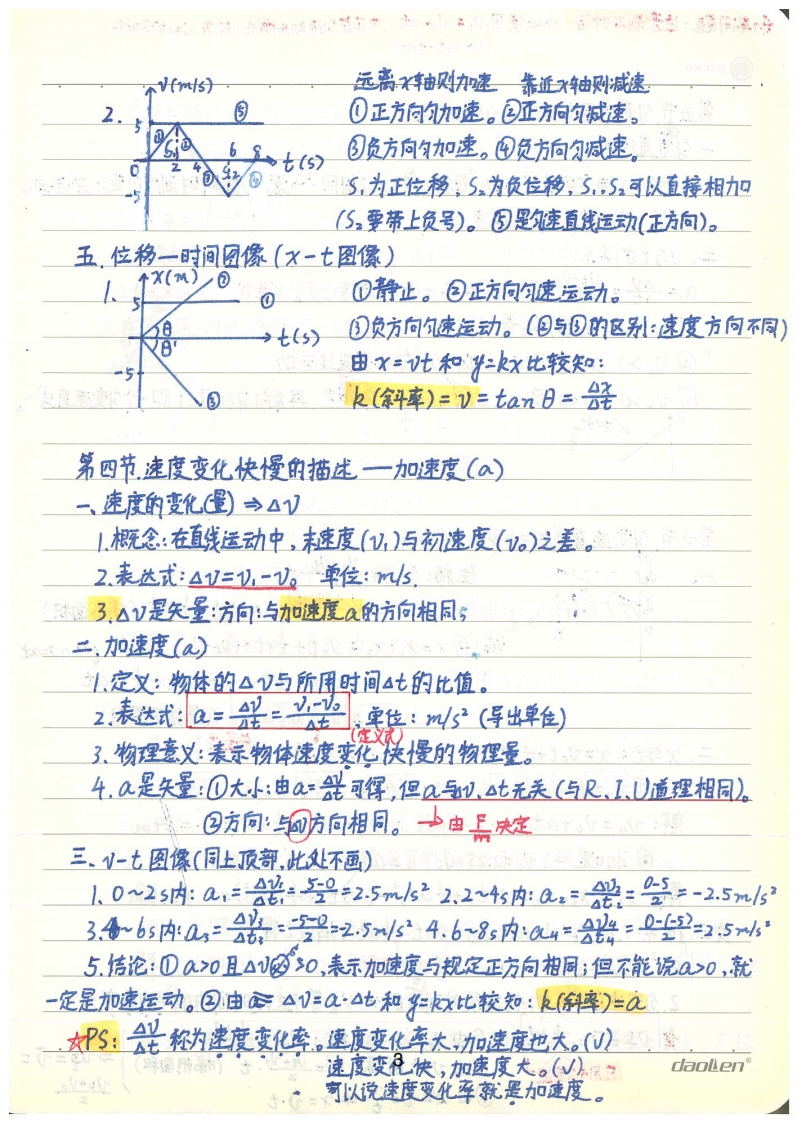 v(m/s)
远离x轴则加速 靠近x轴则减速
2. 5 ① ② ⑤ S₁ 6 8
①正方向匀加速。②正方向匀减速。
0 2 4 t(s)
③负方向匀加速。④负方向匀减速。
-5 ③ S₂ ④
S₁为正位移,S₂为负位移,S₁、S₂可以直接相加
(S₂要带上负号)。⑤是匀速直线运动(正方向)。
五.位移—时间图像(x-t图像)
1. x(m) ② 5 ①
①静止。②正方向匀速运动。
θ θ' t(s)
③负方向匀速运动。(②与③的区别:速度方向不同)
-5 ③
由x=vt和y=kx比较知:
k(斜率)=v=tanθ=Δx/Δt
第四节.速度变化快慢的描述——加速度(a)
一、速度的变化(量)⇒Δv
1.概念:在直线运动中,末速度(v₁)与初速度(v₀)之差。
2.表达式:Δv=v₁-v₀ 单位:m/s.
3.Δv是矢量:方向:与加速度a的方向相同;
二.加速度(a)
1.定义:物体的Δv与所用时间Δt的比值。
2.表达式:a=Δv/Δt=(v₁-v₀)/Δt.单位:m/s²(导出单位)
(定义式)
3.物理意义:表示物体速度变化快慢的物理量。
4.a是矢量:①大小:由a=Δv/Δt可得,但a与Δv、Δt无关(与R、I、U道理相同)。
②方向:与Δv方向相同。 由F/m决定
三、v-t图像(同上顶部,此处不画)
1.0~2s内:a₁=Δv₁/Δt₁=(5-0)/2=2.5m/s² 2.2~4s内:a₂=Δv₂/Δt₂=(0-5)/2=-2.5m/s²
3.4~6s内:a₃=Δv₃/Δt₃=(-5-0)/2=-2.5m/s² 4.6~8s内:a₄=Δv₄/Δt₄=(0-(-5))/2=2.5m/s²
5.结论:①a>0且Δv>0,表示加速度与规定正方向相同;但不能说a>0,就
一定是加速运动。②由Δv=a·Δt和y=kx比较知:k(斜率)=a
☆PS:Δv/Δt称为速度变化率。速度变化率大,加速度也大。(√)
速度变化快,加速度大。(√)
可以说速度变化率就是加速度。
3
daolen®